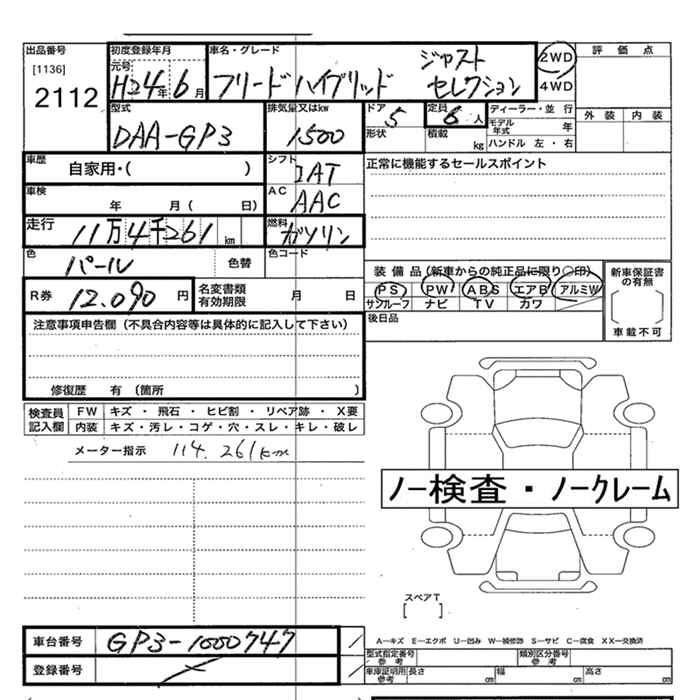 出品番号 初度登録年月 車名・グレード 2WD 評価点
[1136] 元号 ジャスト
2112 H24年6月 フリードハイブリッド セレクション 4WD
型式 排気量又はkw ドア 定員 ディーラー・並行 外装 内装
DAA-GP3 1500 5 6人 モデル年式 年
形状 積載 kg ハンドル 左・右
車歴 自家用・( ) シフト IAT 正常に機能するセールスポイント
車検 年 月( 日) AC AAC
走行 11万4千261km 燃料 ガソリン
色 パール 色替 色コード
装備品(新車からの純正品に限り○印) 新車保証書の有無
R券 12.090円 名変書類有効期限 月 日 PS PW ABS エアB アルミW
サンルーフ ナビ TV カワ
車載不可
注意事項申告欄(不具合内容等は具体的に記入して下さい) 後日品
修復歴 有(箇所 )
検査員記入欄 FW キズ・飛石・ヒビ割・リペア跡・X要
内装 キズ・汚レ・コゲ・穴・スレ・キレ・破レ
メーター指示 114.261km
ノー検査・ノークレーム
スペアT
[ ]
車台番号 GP3-1000747 A-キズ E-エクボ U-凹み W-補修跡 S-サビ C-腐食 XX-交換済
型式指定番号参考 類別区分番号参考
登録番号 車庫証明用参考 長さ cm 幅 cm 高さ cm